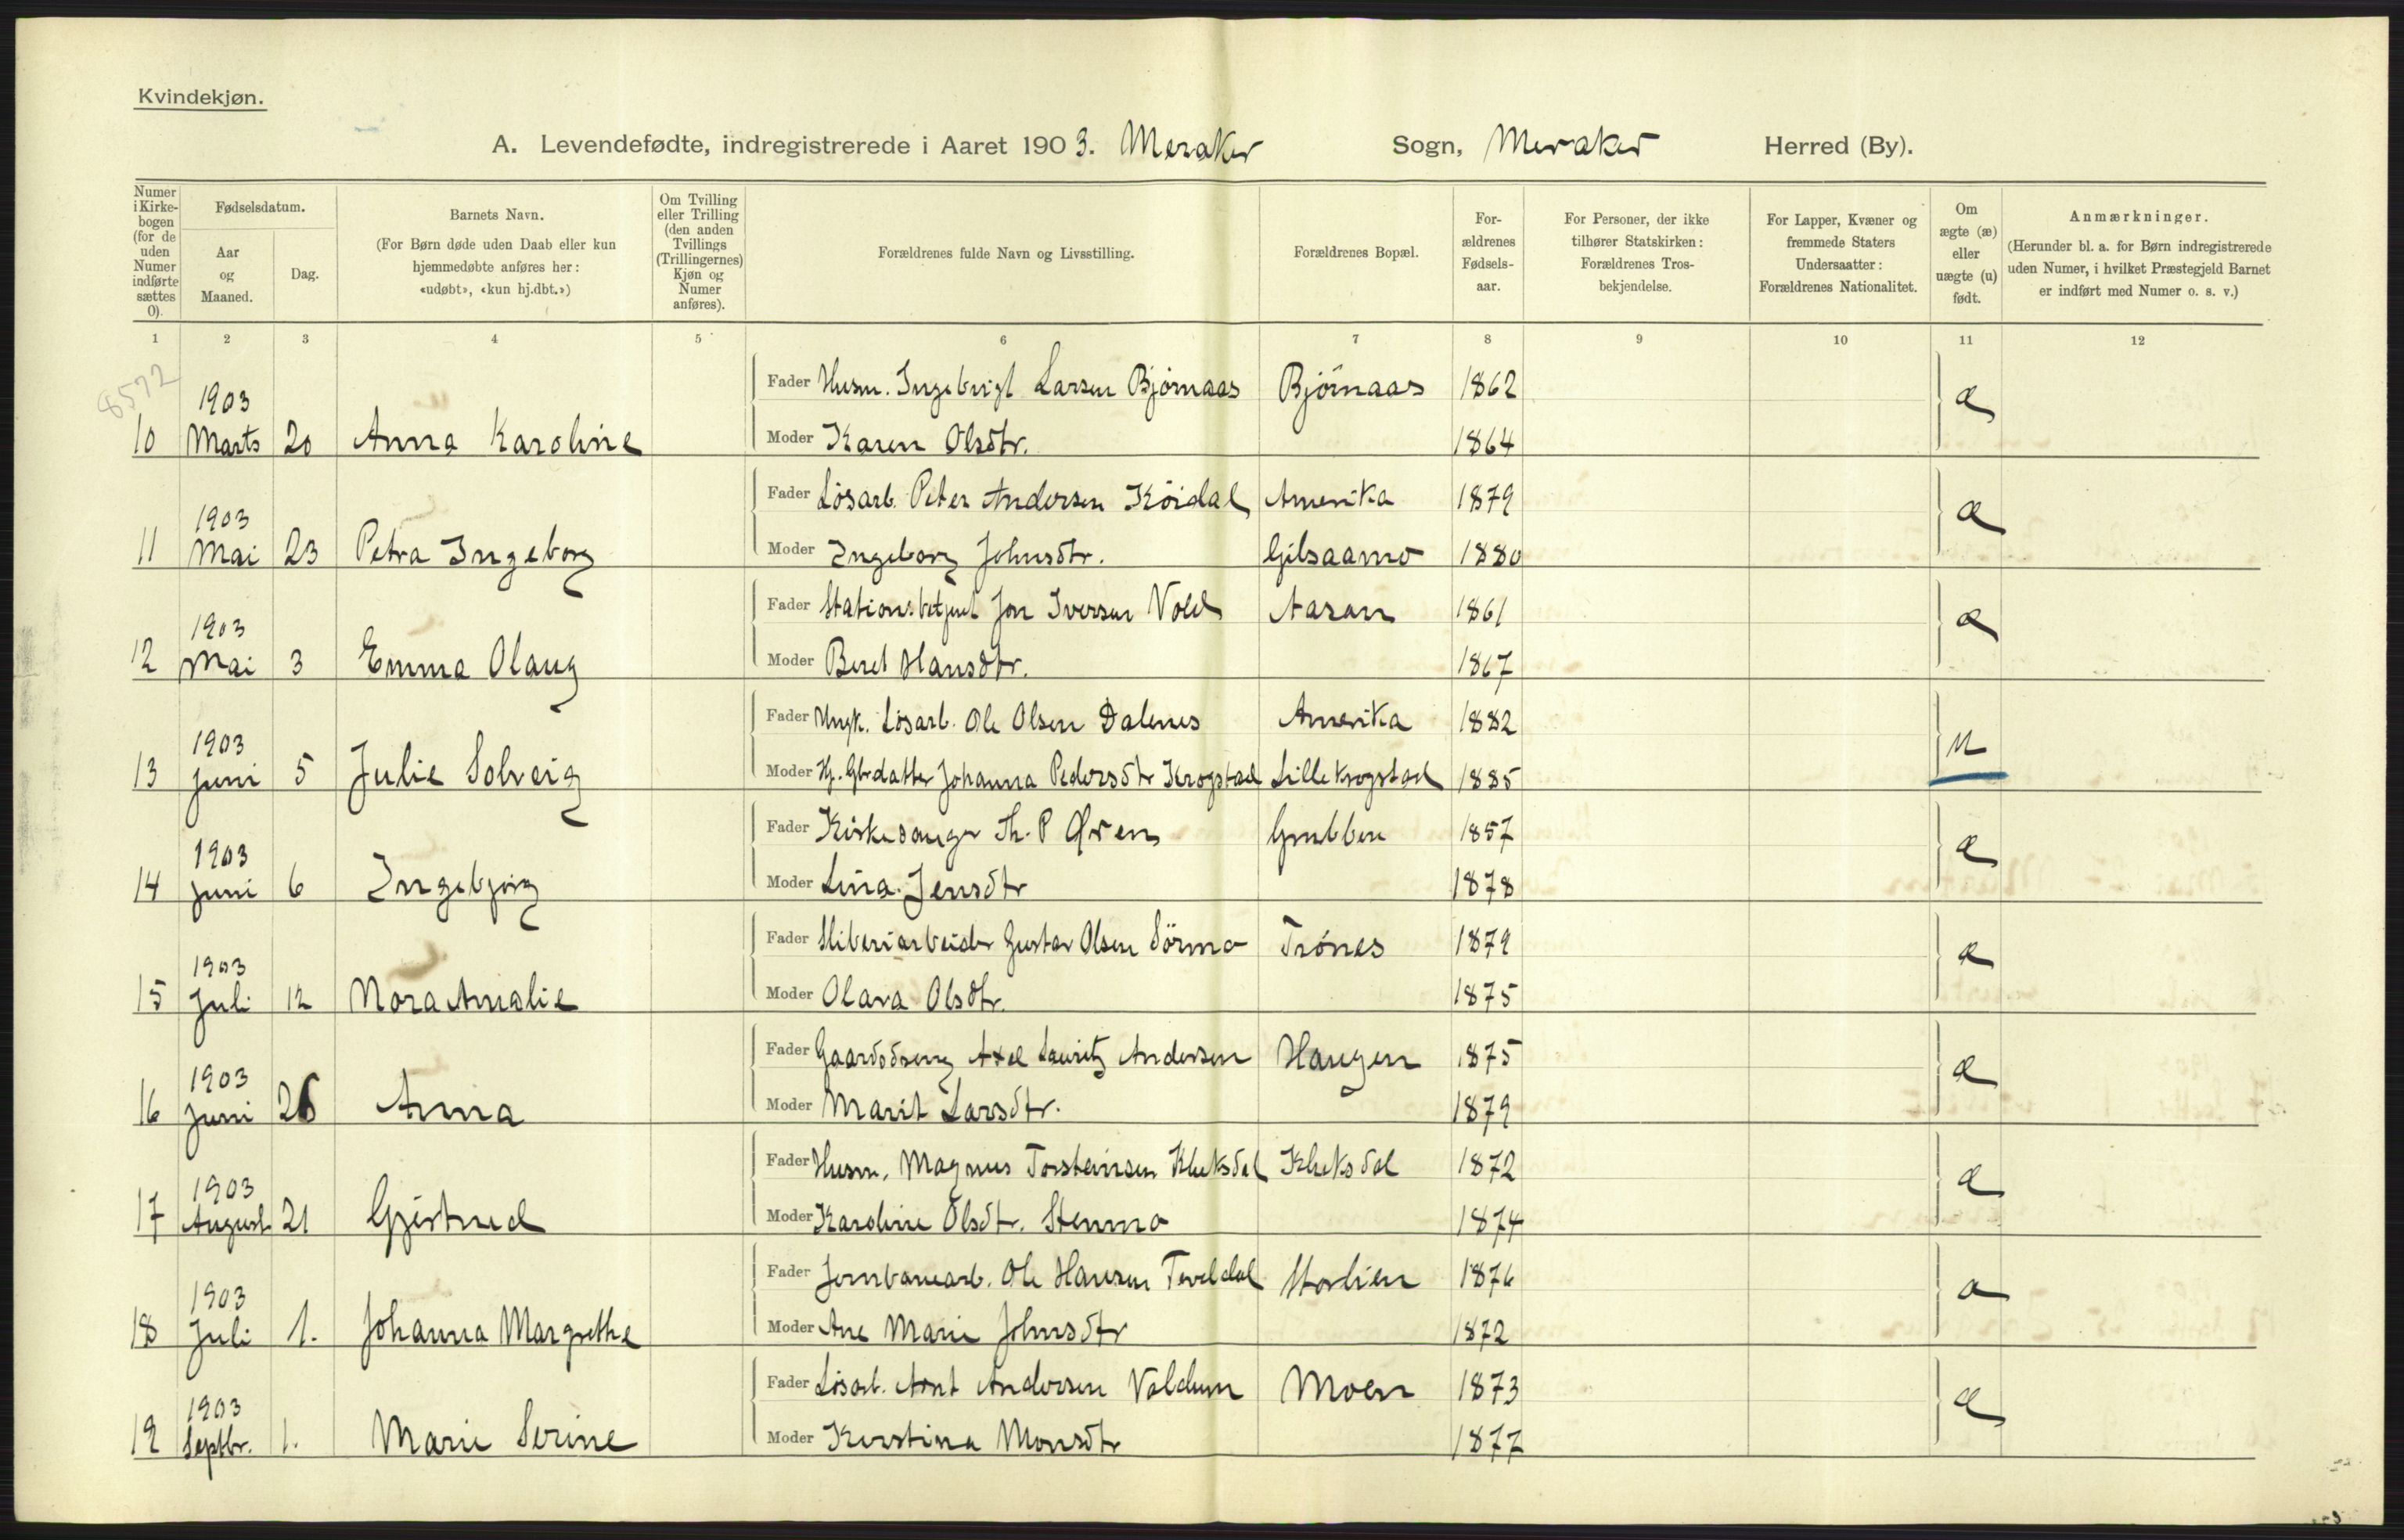 Kvindekjøn.
A. Levendefødte, indregistrerede i Aaret 1903. Meraker Sogn, Meraker Herred (By).
Numer i Kirkebogen (for de uden Numer indførte sættes 0).
Fødselsdatum.
Aar og Maaned.
Dag.
Barnets Navn.
(For Børn døde uden Daab eller kun hjemmedøbte anføres her: «udøbt», «kun hj.dbt.»)
Om Tvilling eller Trilling (den anden Tvillings (Trillingernes) Kjøn og Numer anføres).
Forældrenes fulde Navn og Livsstilling.
Forældrenes Bopæl.
For-ældrenes Fødsels-aar.
For Personer, der ikke tilhører Statskirken: Forældrenes Tros-bekjendelse.
For Lapper, Kvæner og fremmede Staters Undersaatter: Forældrenes Nationalitet.
Om ægte (æ) eller uægte (u) født.
Anmærkninger.
(Herunder bl. a. for Børn indregistrerede uden Numer, i hvilket Præstegjeld Barnet er indført med Numer o. s. v.)
1 2 3 4 5 6 7 8 9 10 11 12
8572
Fader Husm. Ingebrigt Larsen Bjørnaas Bjørnaas 1862
1903 æ
10 Marts 20 Anna Karoline Moder Karen Olsdtr. 1864
Fader Løsarb. Peter Andersen Kõidal Amerika 1879
1903 æ
11 Mai 23 Petra Ingeborg Moder Ingeborg Johnsdtr. Gilsaamo 1880
Fader Stationsbetjent Jon Iversen Vold Aasan 1861
1903 æ
12 Mai 3 Emma Olaug Moder Beret Hansdtr. 1867
Fader Ungk. Løsarb. Ole Olsen Dalenes Amerika 1882
1903 u
13 Juni 5 Julie Solveig Moder Pj. Gbrdatter Johanna Pedersdtr Krogstad Lille Krogstad 1885
Fader Kirkesanger Th. P Øren Grubben 1857
1903 æ
14 Juni 6 Ingebjørg Moder Lina Jensdtr 1878
Fader Sliberiarbeider Gustav Olsen Sörmo Trønes 1879
1903 æ
15 Juli 12 Nora Amalie Moder Olava Olsdtr. 1875
Fader Gaardsdreng Axel Lauritz Andersen Haugen 1875
1903 æ
16 Juni 26 Anna Moder Marit Larsdtr. 1879
Fader Husm. Magnus Torsteinsen Kluksdal Kluksdal 1872
1903 æ
17 August 21 Gjertrud Moder Karoline Olsdtr. Stenmo 1874
Fader Jernbanearb. Ole Hansen Teveldal Storlien 1876
1903 æ
18 Juli 1. Johanna Margrethe Moder Ane Marie Johnsdtr 1872
Fader Løsarb. Arnt Andersen Voldum Moen 1873
1903 æ
19 Septbr. 1. Marie Serine Moder Kirstina Monsdtr 1877